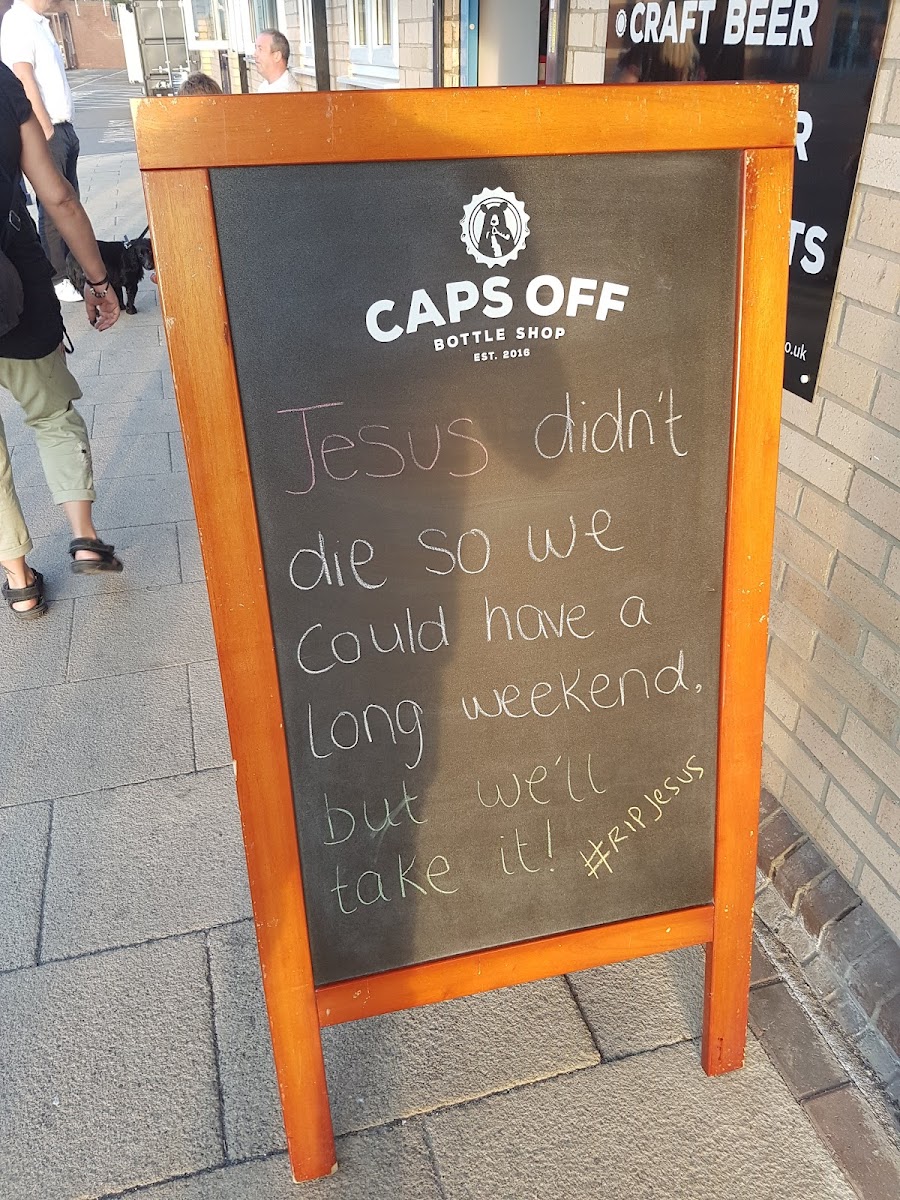 CRAFT BEER
R
TS
o.uk
CAPS OFF
BOTTLE SHOP
EST. 2016
Jesus didn't
die so we
could have a
long weekend,
but we'll
take it!
#RIPJesus